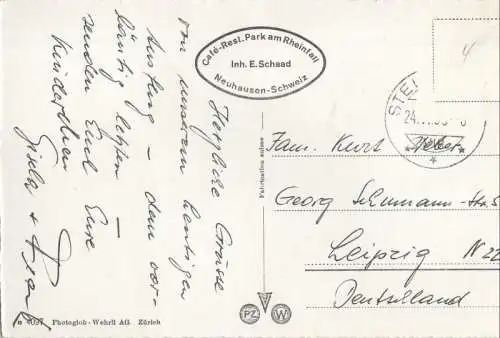 Café-Rest. Park am Rheinfall
Inh. E. Schaad
Neuhausen-Schweiz
Herzliche Grüsse
von unserem heutigen
Ausflug – dem vor-
läufig letzten –
senden Euch Eure
Kinderchen
Gisela + Frank
STE
24.
Fam. Kurt Weber
Georg Schumann-Str. 5
Leipzig N 22
Deutschland
Fabrication suisse
PZ W
n 4097 Photoglob-Wehrli AG. Zürich